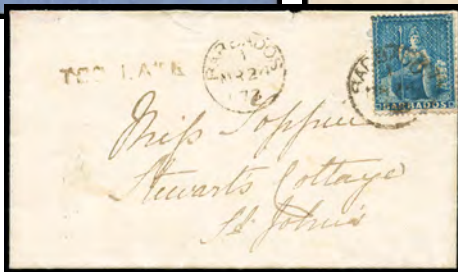 TOO LATE
BARBADOS
1
MR 24
73
BARBADOS
BARBADOS
Miss
Stewarts Cottage
St. John's